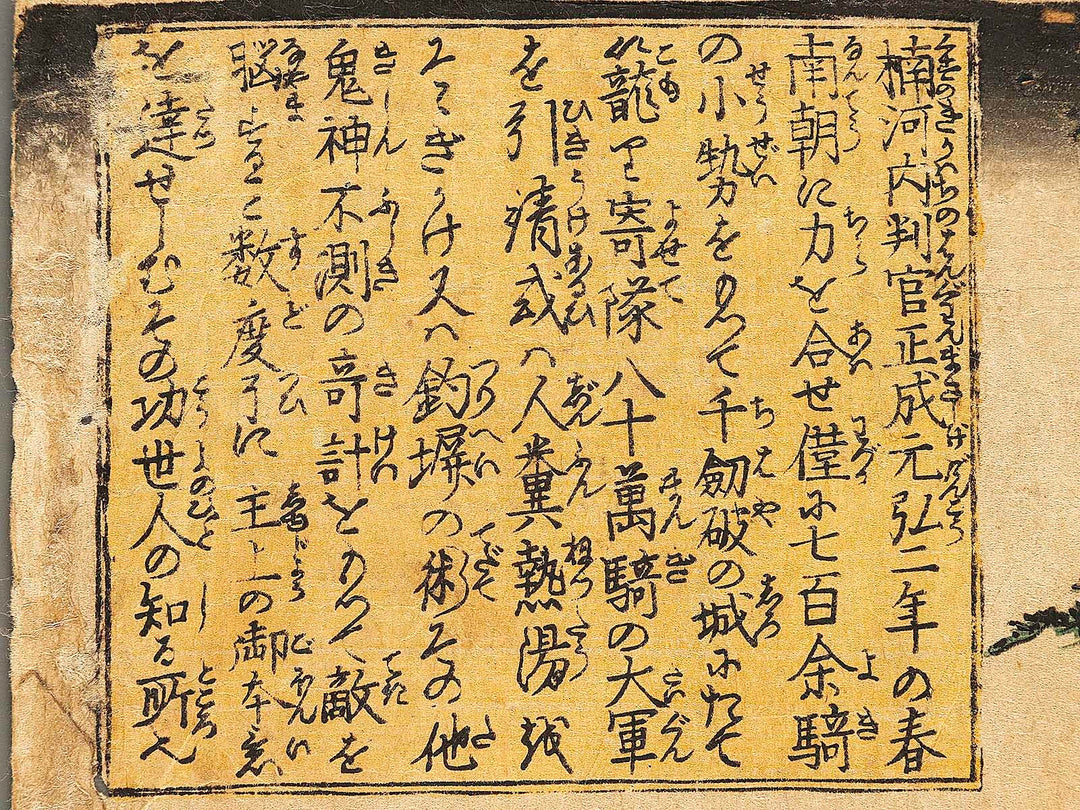 楠河内判官正成元弘二年の春
南朝に力を合せ僅に七百余騎
の小勢をもつて千劔破の城にたて
籠り寄隊八十萬騎の大軍
を引請或は人糞熱湯を
そゝぎかけ又は釣塀の術その他
鬼神不測の奇計をもつて敵を
脳すること数度に主上の御本意
を達せしむその功世人の知る所也